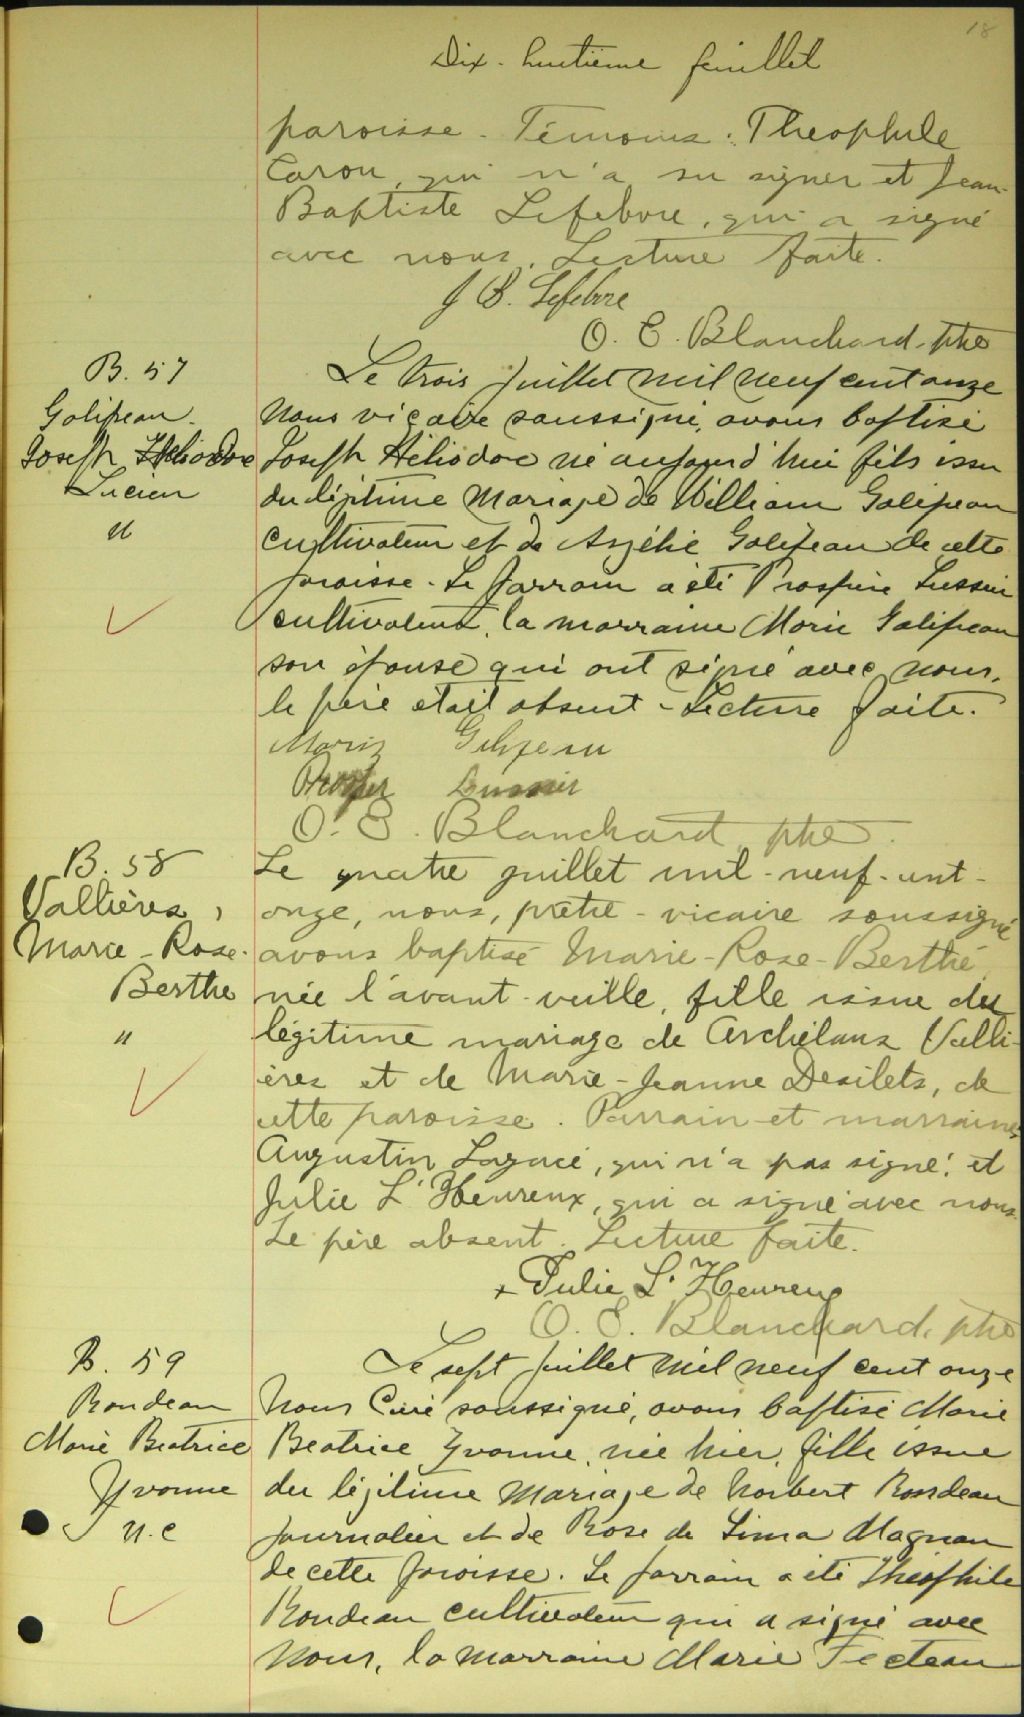 18
Dix-huitième feuillet
paroisse. Témoins: Theophile
Caron, qui n'a su signer et Jean-
Baptiste Lefebvre, qui a signé
avec nous. Lecture faite.
J B. Lefebvre
O. E. Blanchard, ptre
B. 57
Galipeau
Joseph Héliodore
Lucien
"
Le trois juillet mil neuf cent onze
Nous vicaire soussigné, avons baptisé
Joseph Héliodore né aujourd'hui fils issu
du légitime mariage de William Galipeau
cultivateur et de Azélie Galipeau de cette
paroisse. Le parrain a été Prospère Lussier
cultivateur, la marraine Marie Galipeau
son épouse qui ont signé avec nous,
le père etait absent - Lecture faite.
Marie Galipeau
Prosper Lussier
O. E. Blanchard, ptre
B. 58
Vallières,
Marie-Rose-
Berthe
"
Le quatre juillet mil-neuf-cent-
onze, nous, prêtre-vicaire soussigné
avons baptisé Marie-Rose-Berthe,
née l'avant-veille, fille issue du
légitime mariage de Archélaus Valli-
ères et de Marie-Jeanne Desilets, de
cette paroisse. Parrain et marraine,
Augustin Lagacé, qui n'a pas signé, et
Julie L'Heureux, qui a signé avec nous.
Le père absent. Lecture faite.
+ Julie L'Heureux
O. E. Blanchard, ptre
B. 59
Rondeau
Marie Beatrice
Yvonne
n.c
Le sept juillet mil neuf cent onze
Nous Curé soussigné, avons baptisé Marie
Beatrice Yvonne, née hier, fille issue
du légitime mariage de Norbert Rondeau
journalier et de Rose de Lima Magnan
de cette paroisse. Le parrain a été Théophile
Rondeau cultivateur qui a signé avec
Nous, la marraine Marie Fecteau